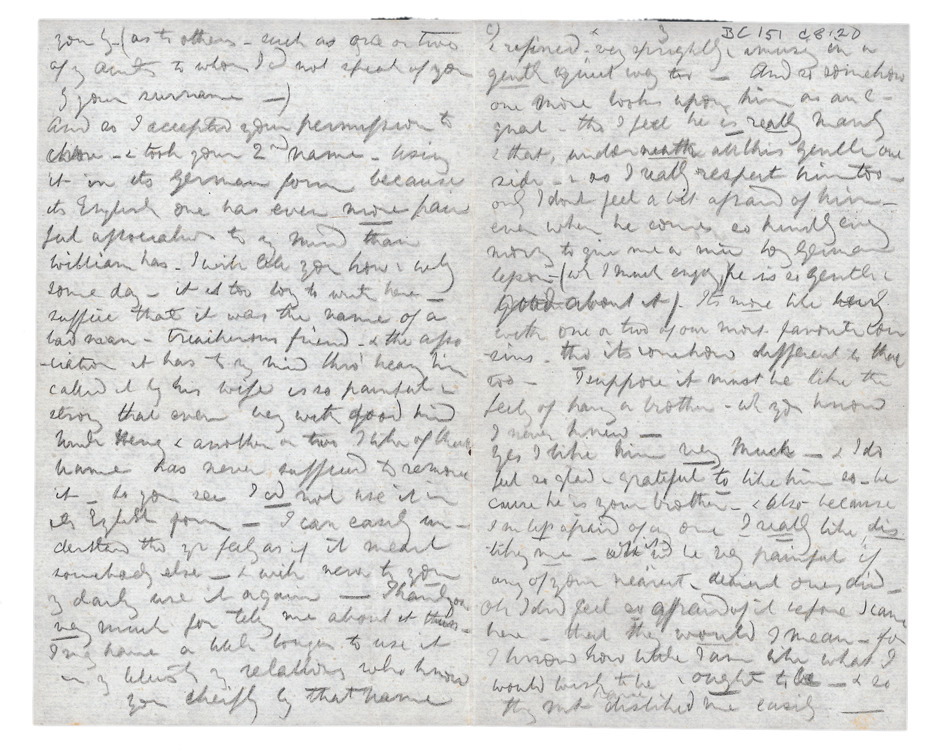 you by - (as to others - such as one or two
of my aunts to whom I did not speak of you
by your surname -)
And so I accepted your permission to
choose - & took your 2nd name - using
it in its German form because
its English one has even more pain
ful associations to my mind than
William has - I will tell you how & why
some day - it is too long to write here -
suffice that it was the name of a
bad man - treacherous friend - & the asso
-ciation it has to my mind thro' hearing him
called it by his wife is so painful &
strong that even very with good kind
& another or two I like of that
name has never sufficed to remove
it - So you see I did not use it in
its English form - I can easily un-
derstand tho yr feeling as if it meant
somebody else - & will never to you
my darling use it again - Thank you
very much for telling me about it
I have a little longer to use it
in my relations who know
you chiefly by that name
3
BC 151 C8.120
& refined - very sprightly & amusing in a
gentle quiet way too - And so somehow
one more looks upon him as an e-
qual - tho I feel he is really manly
& that, underneath all this gentle one
side - & so I really respect him too -
only I dont feel a bit afraid of him -
even when he comes so kindly every
morng to give me a nice long German
lesson - (wh I much enjoy, he is so gentle &
good about it). Its more like being
with one or two of our most favorite cou
sins - tho its somehow different to that
too - I suppose it must be like the
feelg of havg a brother - wh you know
I never knew -
Yes I like him very much - & I do
feel so glad & grateful to like him so - be
cause he is your brother - & also because
I'm less afraid of any one I really like, dis
liking me - wh wd be very painful if
any of your nearest & dearest ones, did -
Oh I did feel so afraid of it before I came
here - that they would I mean - for
I know how little I am like what I
would wish to be & ought to be - & so
they might have disliked me easily -